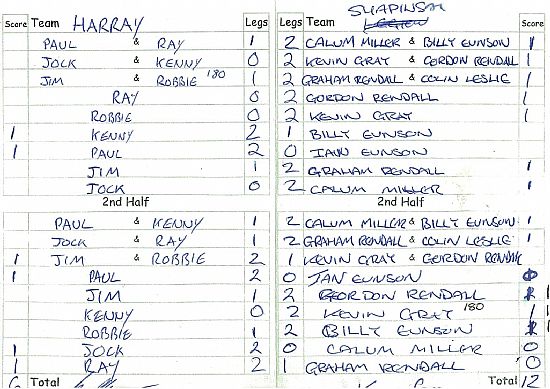 Score Team HARRAY Legs Legs Team SHAPINSAY Score
PAUL & RAY 1 2 CALUM MILLER & BILLY EUNSON 1
JOCK & KENNY 0 2 KEVIN GRAY & GORDON RENDALL 1
JIM & ROBBIE 180 1 2 GRAHAM RENDALL & COLIN LESLIE 1
RAY 0 2 GORDON RENDALL 1
ROBBIE 0 2 KEVIN GRAY 1
1 KENNY 2 1 BILLY EUNSON
1 PAUL 2 0 IAN EUNSON
JIM 1 2 GRAHAM RENDALL 1
JOCK 0 2 CALUM MILLER 1
2nd Half 2nd Half
PAUL & KENNY 1 2 CALUM MILLER & BILLY EUNSON 1
JOCK & RAY 1 2 GRAHAM RENDALL & COLIN LESLIE 1
1 JIM & ROBBIE 2 1 KEVIN GRAY & GORDON RENDALL
1 PAUL 2 0 IAN EUNSON 0
JIM 1 2 GORDON RENDALL 1
KENNY 0 2 KEVIN GRAY 180 1
ROBBIE 1 2 BILLY EUNSON 1
1 JOCK 2 0 CALUM MILLER 0
1 RAY 2 1 GRAHAM RENDALL 0
6 Total Total 12